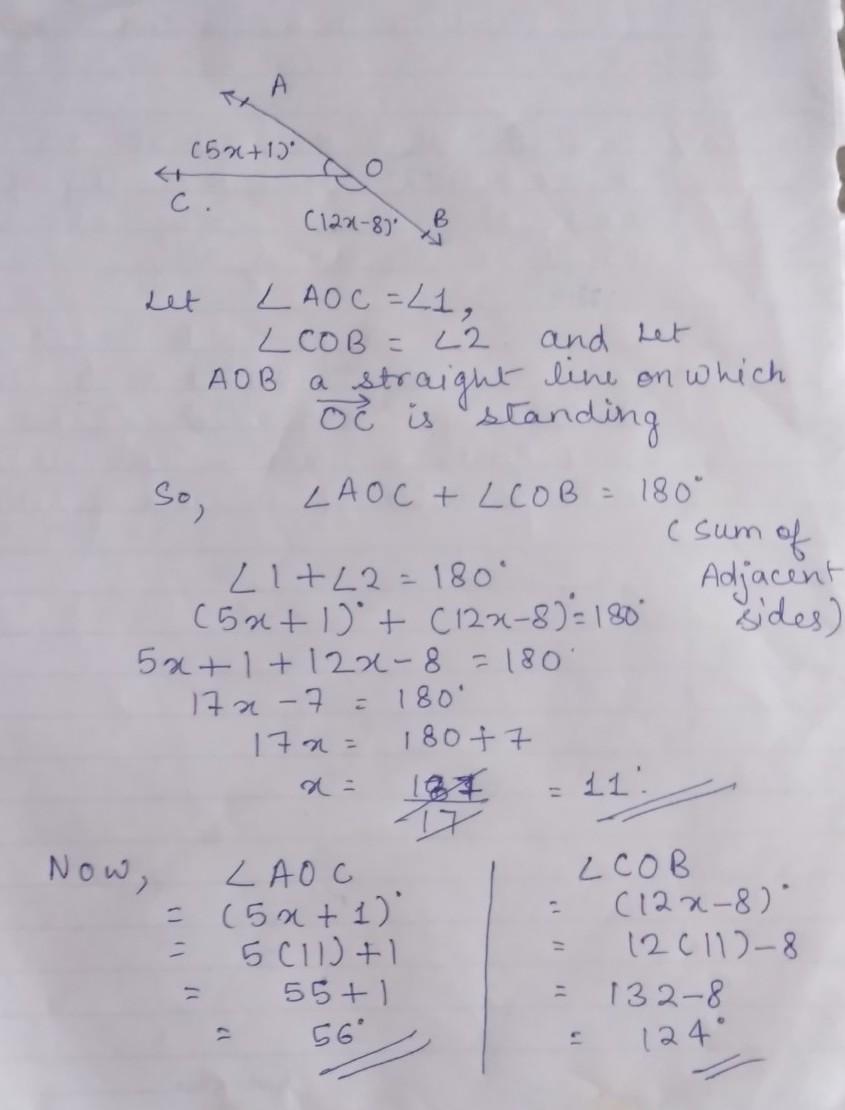 A
(5x+1)°
O
C .
(12x-8)°
B
Let ∠AOC = ∠1,
∠COB = ∠2 and Let
AOB a straight line on which
OC is standing
So, ∠AOC + ∠COB = 180°
(Sum of
∠1 + ∠2 = 180° Adjacent
(5x+1)° + (12x-8)° = 180° sides)
5x+1+12x-8 = 180°
17x - 7 = 180°
17x = 180+7
x = 187/17 = 11°
Now, ∠AOC
= (5x+1)°
= 5(11)+1
= 55+1
= 56°
∠COB
= (12x-8)°
= 12(11)-8
= 132-8
= 124°